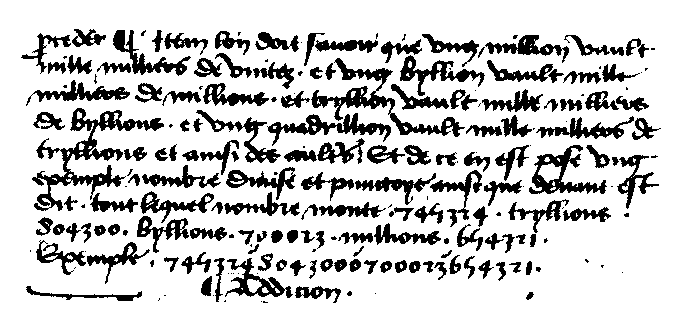 ꝓceder ¶ Item lon doit sauoir que vng million vault
mille milliers de vnitez · et vng byllion vault mille
milliers de millions · et tryllion vault mille milliers
de byllions · et vng quadrillion vault mille milliers de
tryllions et ainsi des aultrs̃ Et de ce en est pose vng
exemple nombre diuise et punctoye ainsi que deuant est
dit · tout lequel nombre monte · 745324 · tryllions ·
804300 · byllions · 700023 · millions · 654321 ·
Exemple · 745324'804300'700023'654321 ·
¶ Addicion ·